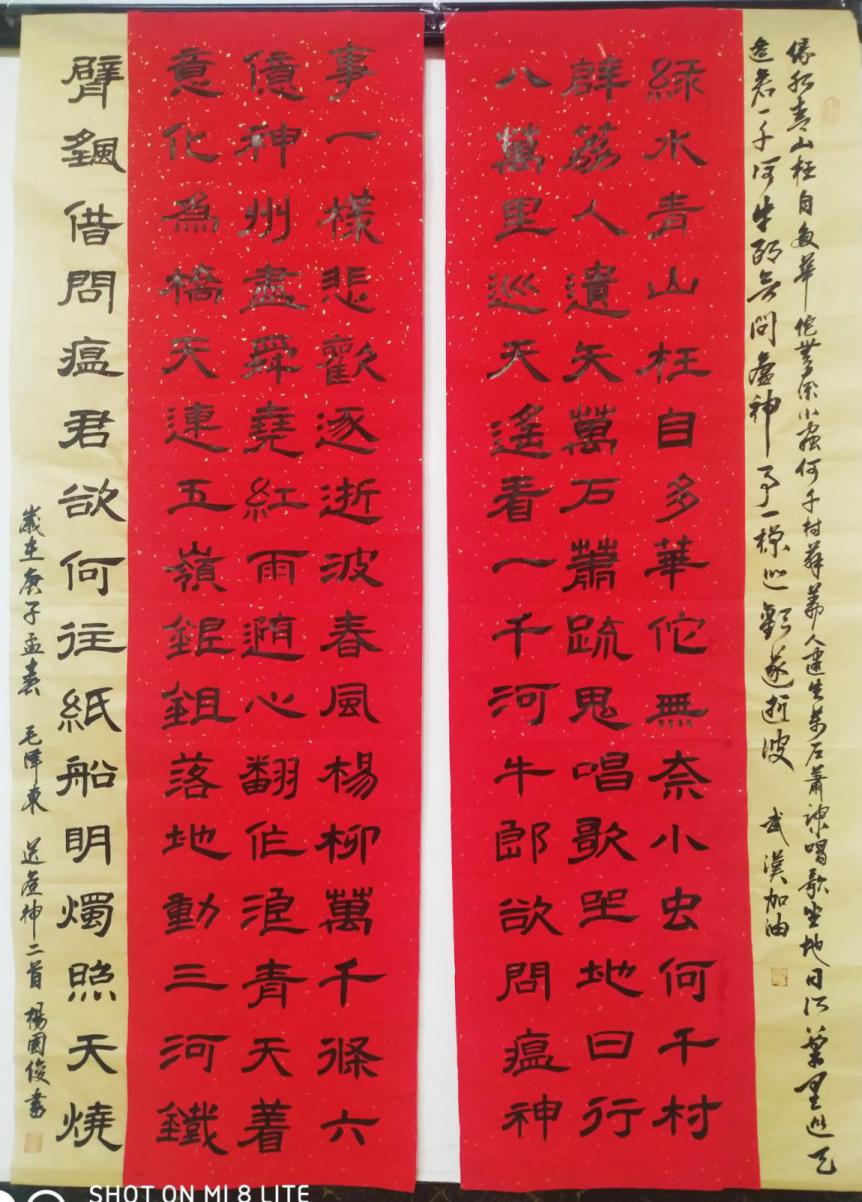 綠水青山枉自多華佗無奈小蟲何千村薜荔人遺矢萬石蕭疎唱歌坐地日行萬里巡天
遙看一千河牛郎欲問瘟神事一樣悲歡逐逝波 武漢加油
綠水青山枉自多華佗無奈小虫何千村
薜荔人遺矢萬石蕭疏鬼唱歌坐地日行
八萬里巡天遙看一千河牛郎欲問瘟神
事一樣悲歡逐逝波春風楊柳萬千條六
億神州盡舜堯紅雨隨心翻作浪青天着
意化為橋天連五嶺銀鉏落地動三河鐵
臂借問瘟君欲何往紙船明燭照天燒
歲在庚子孟春 毛澤東 送瘟神二首 楊國俊書
SHOT ON MI 8 LITE